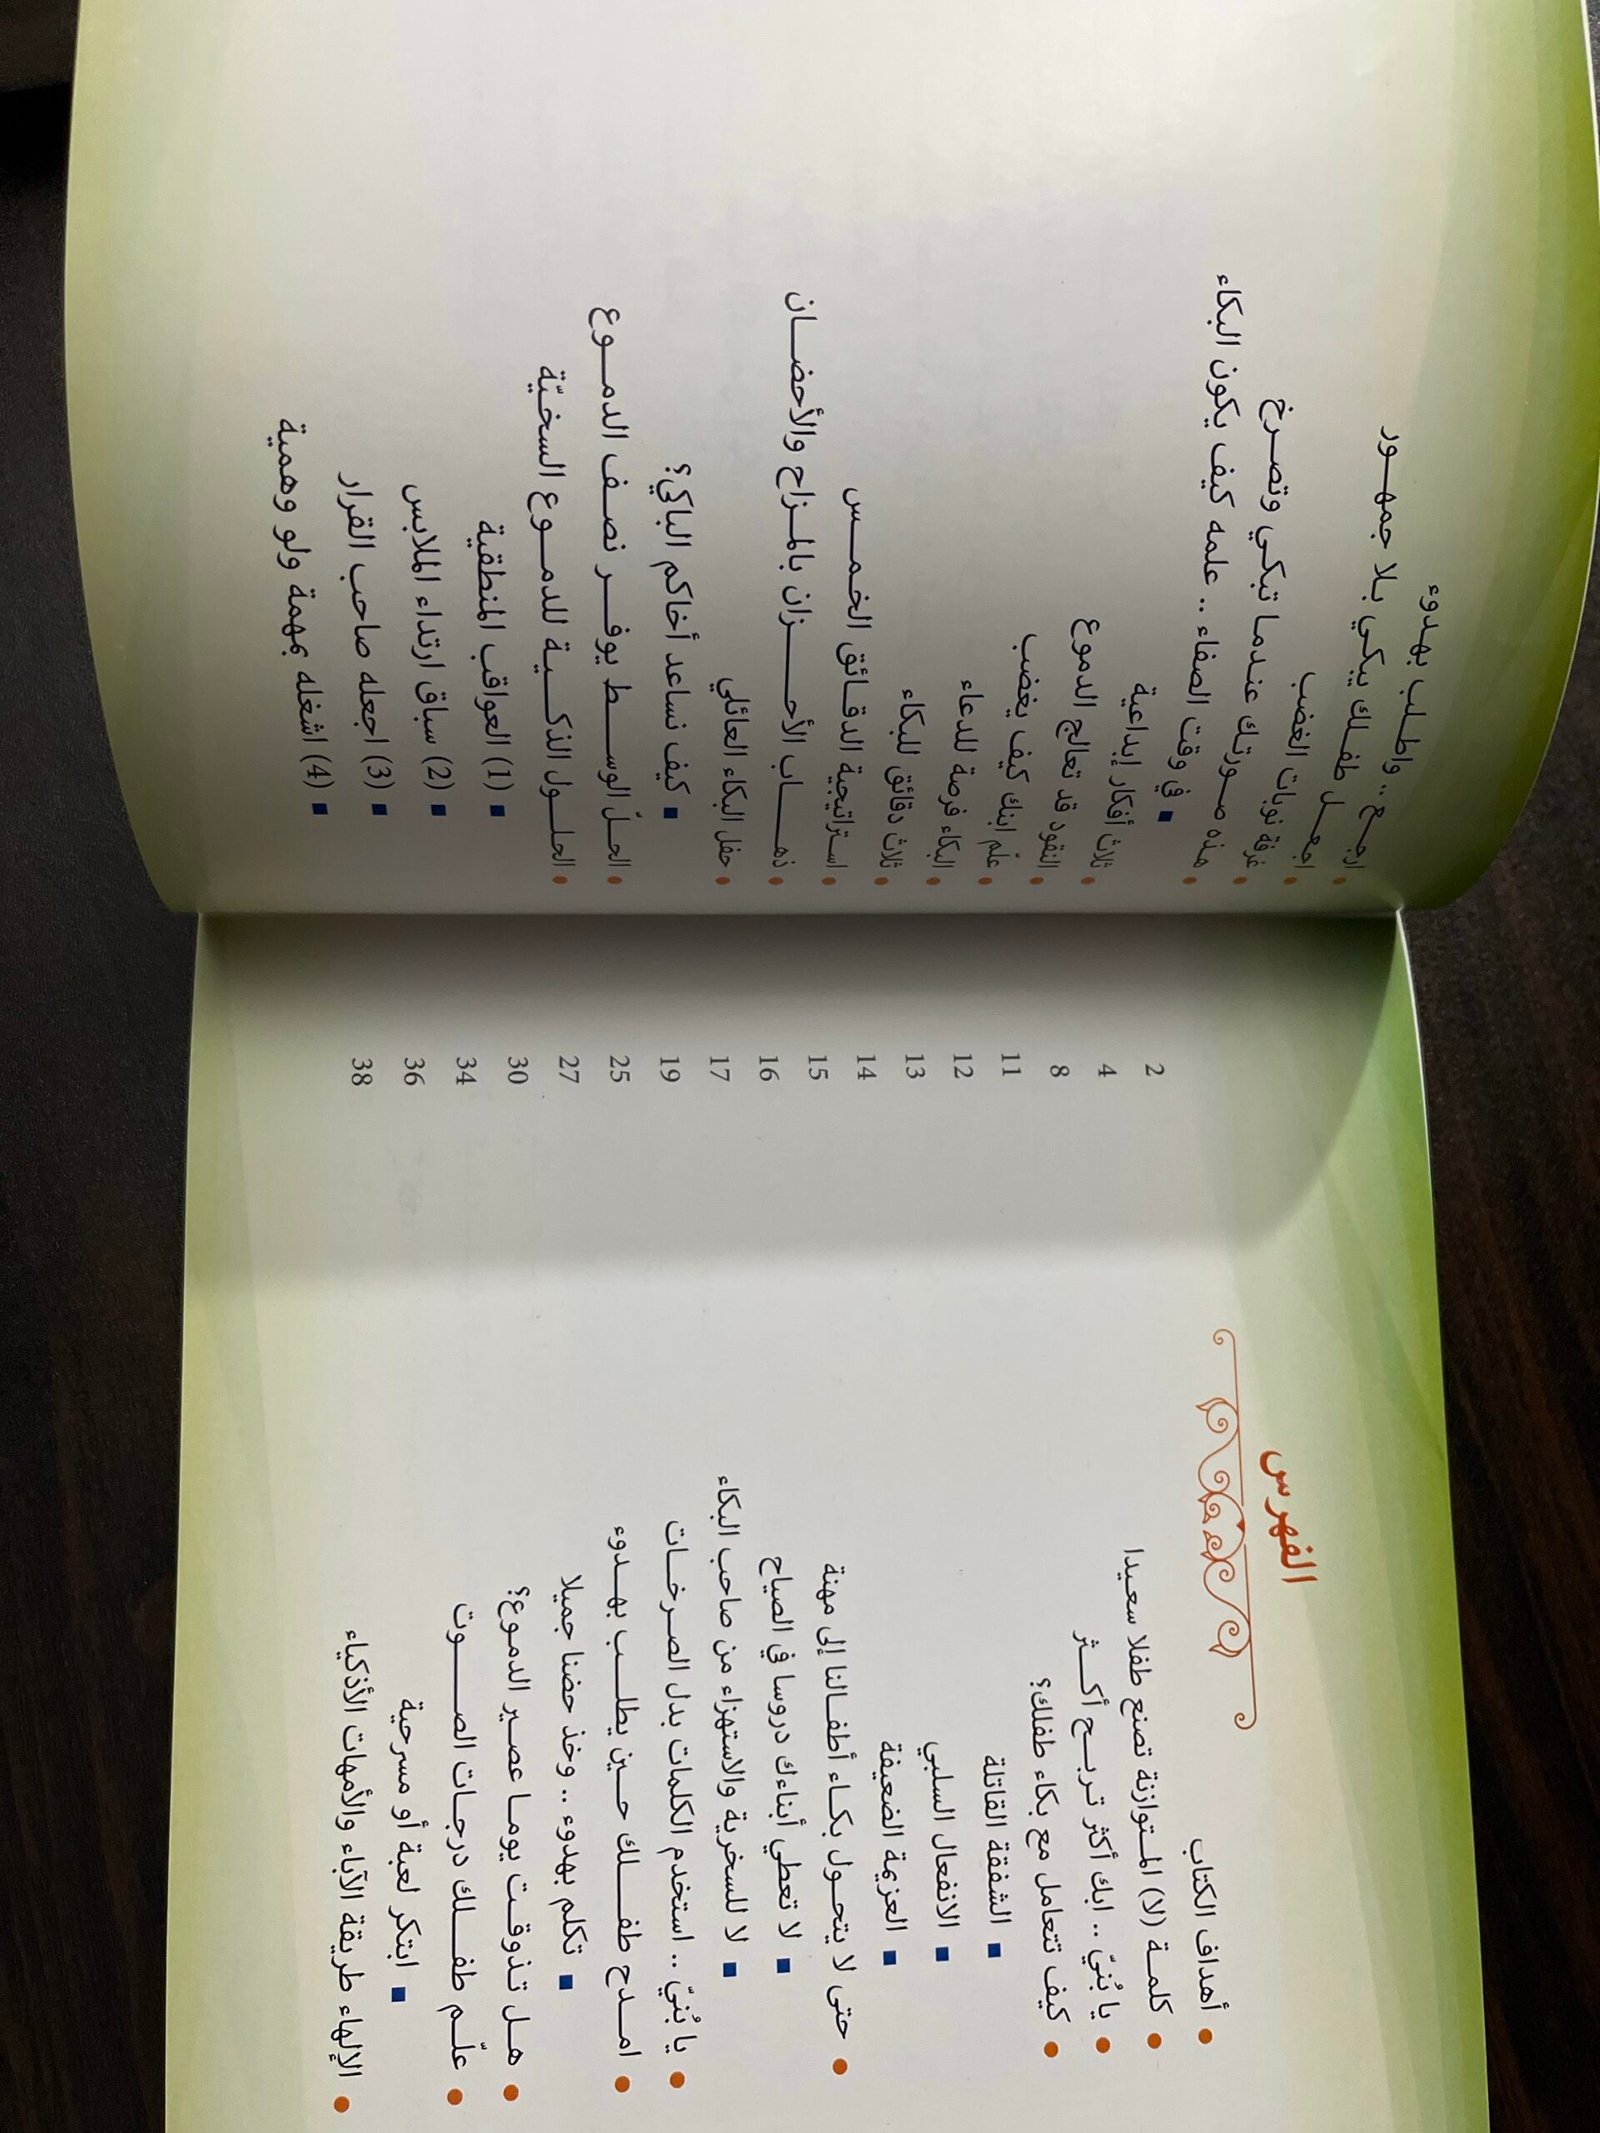 الفهرس
أهداف الكتاب 2
كلمة (لا) المتوازنة تصنع طفلا سعيدا 4
يا بُنيّ .. ابك أكثر تربح أكثر 8
كيف تتعامل مع بكاء طفلك؟ 11
الشفقة القاتلة 12
الانفعال السلبي 13
العزيمة الضعيفة 14
حتى لا يتحول بكاء أطفالنا إلى مهنة 15
لا تعطي أبناءك دروسا في الصياح 16
لا للسخرية والاستهزاء من صاحب البكاء 17
يا بُنيّ .. استخدم الكلمات بدل الصرخات 19
امدح طفلك حين يطلب بهدوء 25
تكلم بهدوء .. وخذ حضنا جميلا 27
هل تذوقت يوما عصير الدموع؟ 30
علّم طفلك درجات الصوت 34
ابتكر لعبة أو مسرحية 36
الإلهاء طريقة الآباء والأمهات الأذكياء 38
ارجع .. واطلب بهدوء
اجعل طفلك يبكي بلا جمهور
غرفة نوبات الغضب
هذه صورتك عندما تبكي وتصرخ
في وقت الصفاء .. علمه كيف يكون البكاء
ثلاث أفكار إبداعية
النقود قد تعالج الدموع
علّم ابنك كيف يغضب
البكاء فرصة للدعاء
ثلاث دقائق للبكاء
استراتيجية الدقائق الخمس
ذهاب الأحزان بالمزاح والأحضان
حفل البكاء العائلي
كيف نساعد أخاكم الباكي؟
الحلّ الوسط يوفر نصف الدموع
الحلول الذكية للدموع السخيّة
(1) العواقب المنطقية
(2) سباق ارتداء الملابس
(3) اجعله صاحب القرار
(4) اشغله بمهمة ولو وهمية